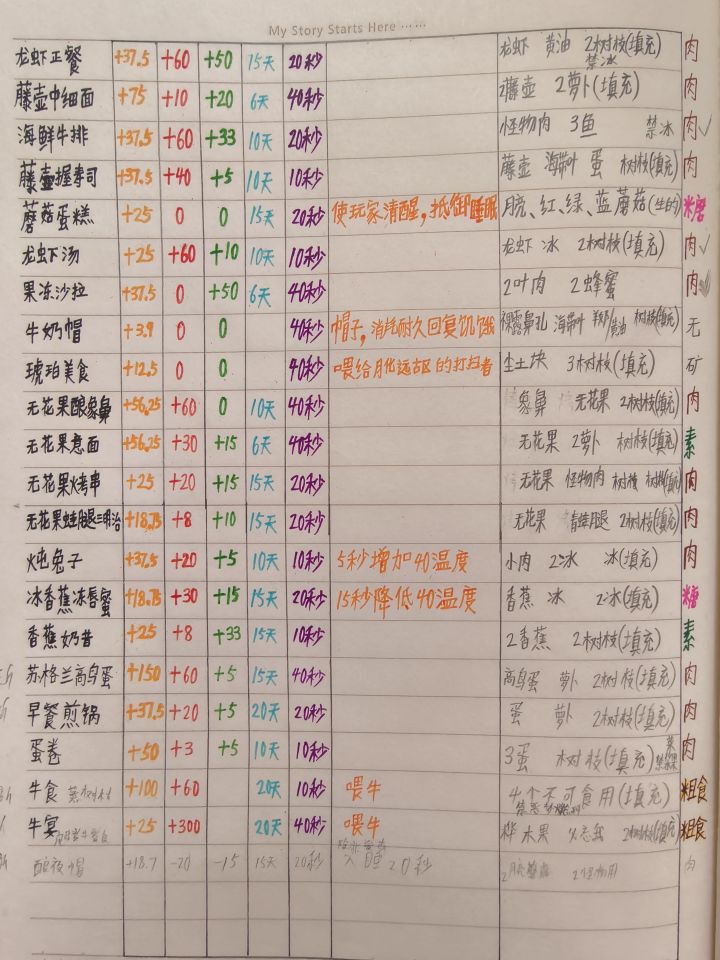 My Story Starts Here ……
龙虾正餐 +37.5 +60 +50 15天 20秒 龙虾 黄油 2树枝(填充) 禁冰 肉
藤壶中细面 +75 +10 +20 6天 40秒 2藤壶 2萝卜(填充) 肉
海鲜牛排 +37.5 +60 +33 10天 20秒 怪物肉 3鱼 禁冰 肉✓
藤壶握寿司 +37.5 +40 +5 10天 10秒 藤壶 海带叶 蛋 树枝(填充) 肉
蘑菇蛋糕 +25 0 0 15天 20秒 使玩家清醒,抵御睡眠 月亮、红、绿、蓝蘑菇(生的) 糖
龙虾汤 +25 +60 +10 10天 10秒 龙虾 冰 2树枝(填充) 肉✓
果冻沙拉 +37.5 0 +50 6天 40秒 2叶肉 2蜂蜜 肉
牛奶帽 +3.9 0 0 40秒 帽子,消耗耐久回复饥饿 裸露鼻孔 海带叶 黄油 树枝(填充) 无
琥珀美食 +12.5 0 0 40秒 喂给月化远古区的打扫者 尘土块 3树枝(填充) 矿
无花果酿象鼻 +56.25 +60 0 10天 40秒 象鼻 无花果 2树枝(填充) 肉
无花果意面 +56.25 +30 +15 6天 40秒 无花果 2萝卜 树枝(填充) 素
无花果烤串 +25 +20 +15 15天 20秒 无花果 怪物肉 树枝 树枝(填充) 肉
无花果蛙腿三明治 +18.75 +8 +10 15天 20秒 无花果 青蛙腿 2树枝(填充) 肉
炖兔子 +37.5 +20 +5 10天 10秒 5秒增加40温度 小肉 2冰 冰(填充) 肉
冰香蕉冻唇蜜 +18.75 +30 +15 15天 20秒 15秒降低40温度 香蕉 冰 2冰(填充) 糖
香蕉奶昔 +25 +8 +33 15天 10秒 2香蕉 2树枝(填充) 素
苏格兰高鸟蛋 +150 +60 +5 15天 40秒 高鸟蛋 萝卜 2树枝(填充) 肉
早餐煎锅 +37.5 +20 +5 20天 20秒 蛋 萝卜 2树枝(填充) 肉
蛋卷 +50 +3 +5 10天 10秒 3蛋 树枝(填充) 肉
牛食 +100 +60 20天 10秒 喂牛 4个不可食用(填充) 粗食
牛宴 +25 +300 20天 40秒 喂牛 桦木果 必忘我 2树枝(填充) 粗食
夜帽 +18.7 -20 -15 15天 20秒 入睡20秒 肉